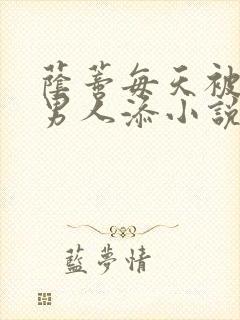 蔭蒂每天被
男人添小說
藍夢情